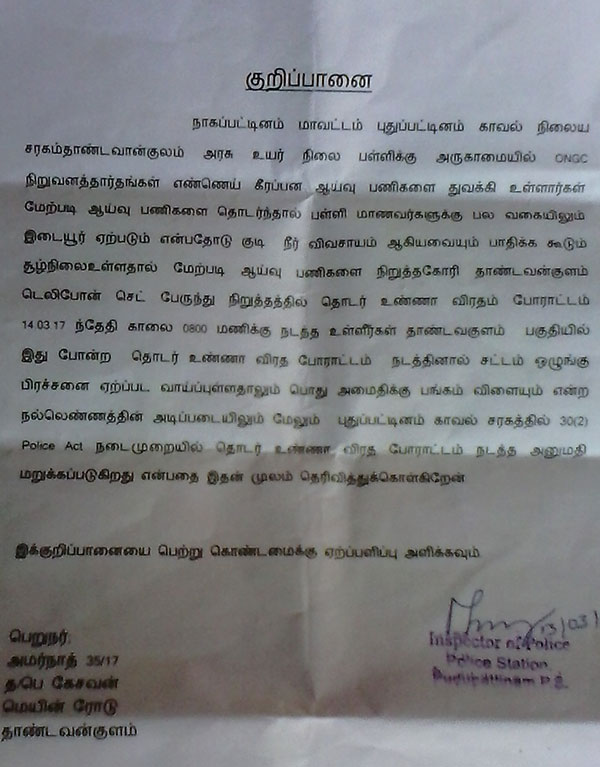 குறிப்பானை
நாகப்பட்டினம் மாவட்டம் புதுப்பட்டினம் காவல் நிலைய
சரகம்தாண்டவான்குலம் அரசு உயர் நிலை பள்ளிக்கு அருகாமையில் ONGC
நிறுவனத்தார்தங்கள் எண்ணெய் கீரப்பன ஆய்வு பணிகளை துவக்கி உள்ளார்கள்
மேற்படி ஆய்வு பணிகளை தொடர்ந்தால் பள்ளி மாணவர்களுக்கு பல வகையிலும்
இடையூர் ஏற்படும் என்பதோடு குடி நீர் விவசாயம் ஆகியவையும் பாதிக்க கூடும்
சூழ்நிலைஉள்ளதால் மேற்படி ஆய்வு பணிகளை நிறுத்தகோரி தாண்டவன்குளம்
டெலிபோன் செட் பேருந்து நிறுத்தத்தில் தொடர் உண்ணா விரதம் போராட்டம்
14.03.17 ந்தேதி காலை 0800 மணிக்கு நடத்த உள்ளீர்கள் தாண்டவகுளம் பகுதியில்
இது போன்ற தொடர் உண்ணா விரத போராட்டம் நடத்தினால் சட்டம் ஒழுங்கு
பிரச்சனை ஏற்ப்பட வாய்ப்புள்ளதாலும் பொது அமைதிக்கு பங்கம் விளையும் என்ற
நல்லெண்ணத்தின் அடிப்படையிலும் மேலும் புதுப்பட்டினம் காவல் சரகத்தில் 30(2)
Police Act நடைமுறையில் தொடர் உண்ணா விரத போராட்டம் நடத்த அனுமதி
மறுக்கப்படுகிறது என்பதை இதன் முலம் தெரிவித்துக்கொள்கிறேன்
இக்குறிப்பானையை பெற்று கொண்டமைக்கு ஏற்ப்பளிப்பு அளிக்கவும்
13/03/
Inspector of Police
Police Station
Pudupattinam P.S.
பெறுநர்
அமர்நாத் 35/17
தபெ கேசவன்
மெயின் ரோடு
தாண்டவன்குளம்